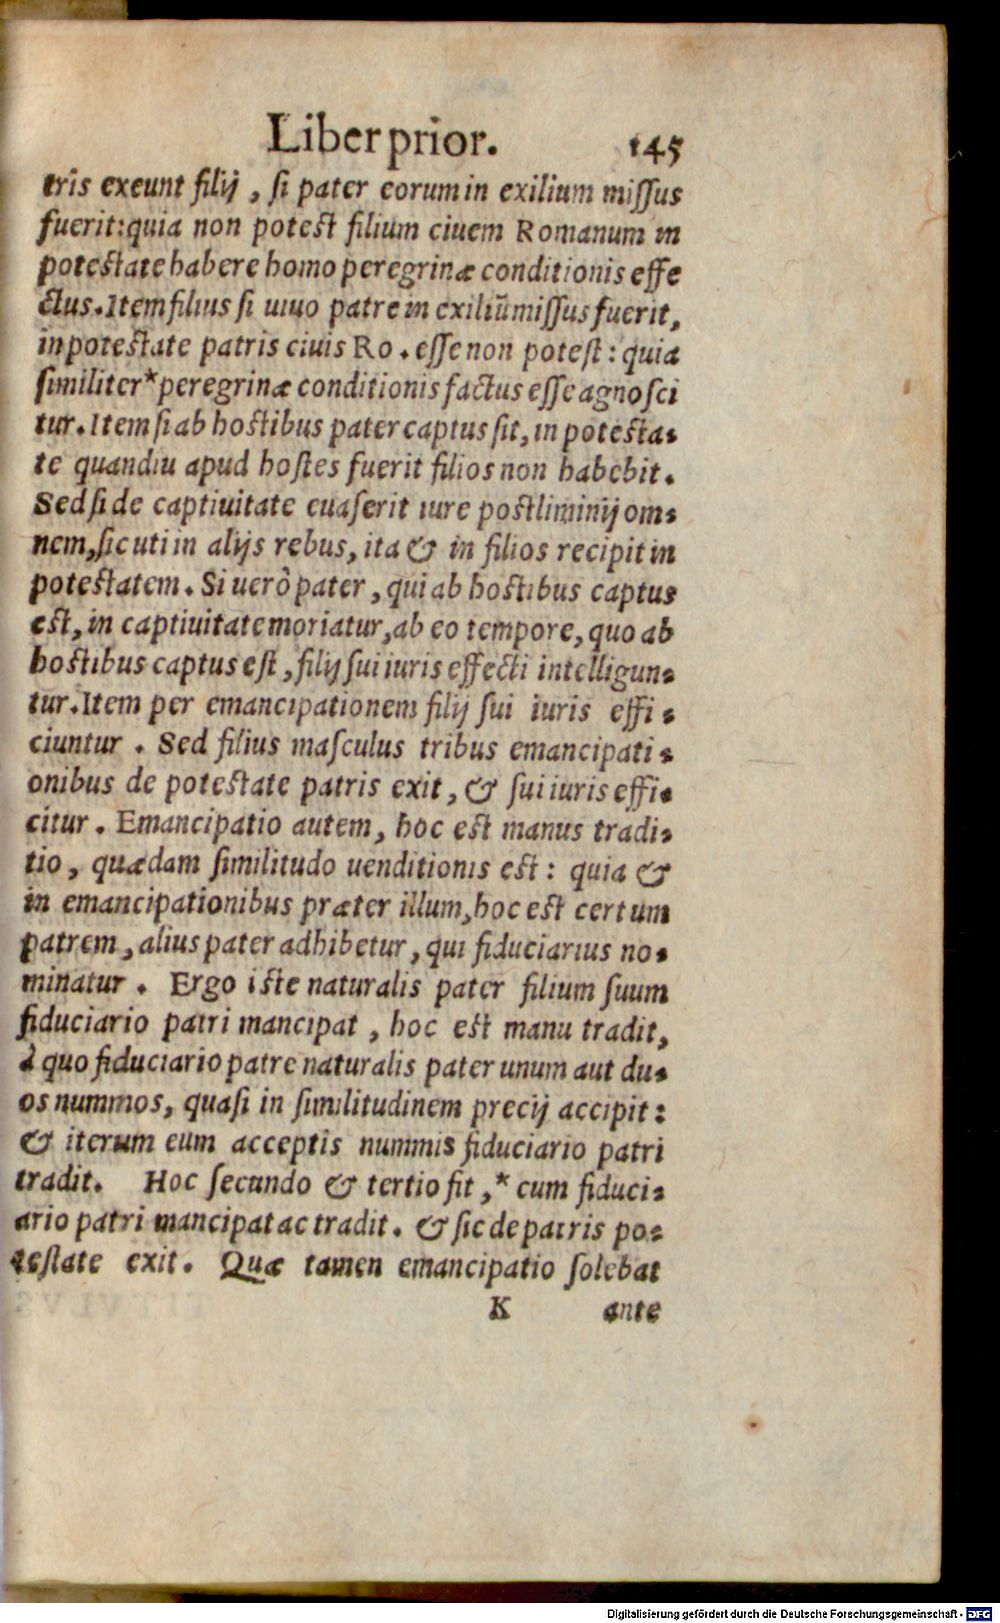 Liber prior. 145
tris exeunt filij, si pater eorum in exilium missus
fuerit: quia non potest filium ciuem Romanum in
potestate habere homo peregrinæ conditionis effe
ctus. Item filius si uiuo patre in exiliũ missus fuerit,
in potestate patris ciuis Ro. esse non potest: quia
similiter* peregrinæ conditionis factus esse agnosci
tur. Item si ab hostibus pater captus sit, in potesta-
te quandiu apud hostes fuerit filios non habebit.
Sed si de captiuitate euaserit iure postliminij om-
nem, sicuti in alijs rebus, ita & in filios recipit in
potestatem. Si uerò pater, qui ab hostibus captus
est, in captiuitate moriatur, ab eo tempore, quo ab
hostibus captus est, filij sui iuris effecti intelligun-
tur. Item per emancipationem filij sui iuris effi-
ciuntur. Sed filius masculus tribus emancipati-
onibus de potestate patris exit, & sui iuris effi-
citur. Emancipatio autem, hoc est manus tradi-
tio, quædam similitudo uenditionis est: quia &
in emancipationibus præter illum, hoc est certum
patrem, alius pater adhibetur, qui fiduciarius no-
minatur. Ergo iste naturalis pater filium suum
fiduciario patri mancipat, hoc est manu tradit,
à quo fiduciario patre naturalis pater unum aut du-
os nummos, quasi in similitudinem precij accipit:
& iterum eum acceptis nummis fiduciario patri
tradit. Hoc secundo & tertio fit,* cum fiduci-
ario patri mancipat ac tradit. & sic de patris po-
testate exit. Quæ tamen emancipatio solebat
K ante
Digitalisierung gefördert durch die Deutsche Forschungsgemeinschaft - DFG